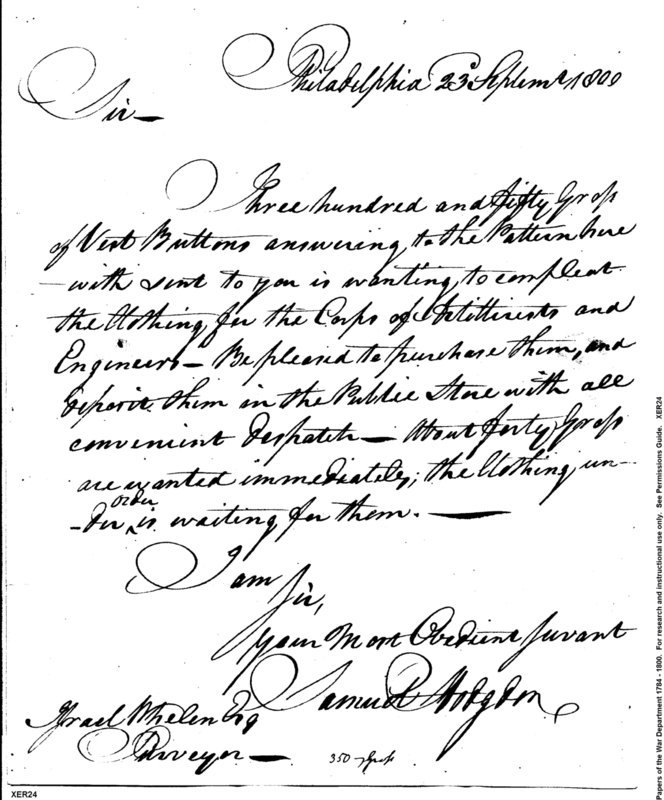 Philadelphia 23d Septemr 1800
Sir —
Three hundred and fifty Gross
of Vest Buttons answering to the Pattern here
- with sent to you is wanting to compleat
the Clothing for the Corps of Artillirists and
Engineers — Be pleased to purchase them, and
deposit them in the Public Store with all
convenient Despatch — About forty Gross
are wanted immediately; the Clothing un-
order
-der ^ is waiting for them. —
I am
Sir,
Your Most Obedient Servant
Samuel Hodgdon
Israel Whelen Esq
Purveyor —
350 Gross
XER24
Papers of the War Department 1784 - 1800. For research and instructional use only. See Permissions Guide. XER24